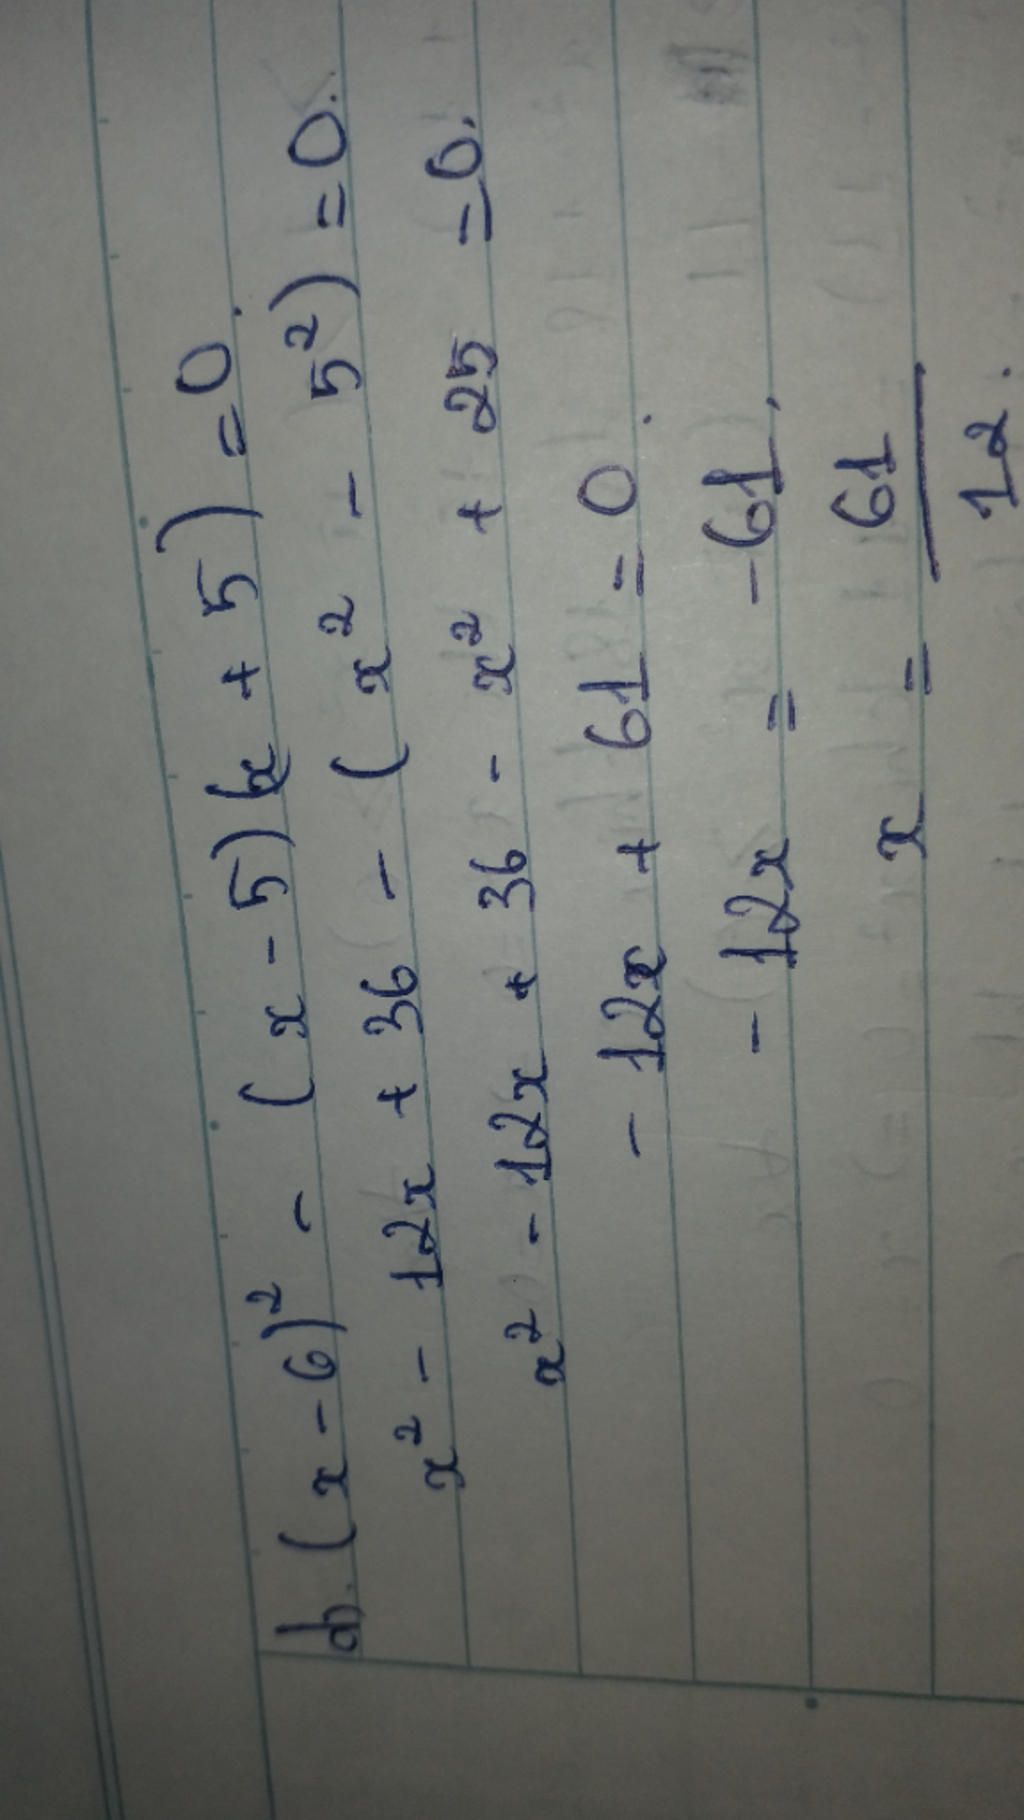 b. (x - 6)² - (x - 5)(x + 5) = 0.
x² - 12x + 36 - (x² - 5²) = 0.
x² - 12x + 36 - x² + 25 = 0.
- 12x + 61 = 0.
- 12x = - 61.
x = 61/12.